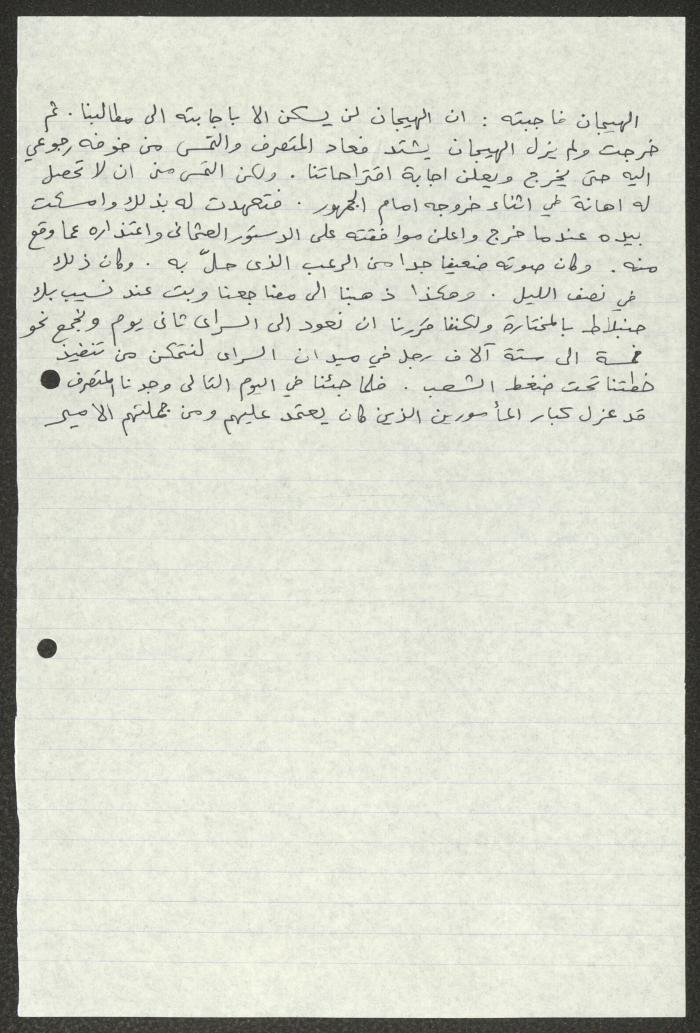 الهيجان فاجبته : ان الهيجان لن يسكن الا باجابته الى مطالبنا . ثم
خرجت ولم يزل الهيجان يشتد فعاد المتصرف والتمس من خوفه رجوعي
اليه حتى يخرج ويعلن اجابة اقتراحاتنا . ولكن التمس مني ان لا تحصل
له اهانة في اثناء خروجه امام الجمهور . فتعهدت له بذلك وامسكت
بيده عندما خرج واعلن موافقته على الدستور العثماني واعتذاره عما وقع
منه . وكان صوته ضعيفا جدا من الرعب الذى حلّ به . وكان ذلك
في نصف الليل . وهكذا ذهبنا الى مضاجعنا وبت عند نسيب بك
جنبلاط بالمختارة ولكننا قررنا ان نعود الى السراى ثانى يوم ونجمع نحو
خمسة الى ستة آلاف رجل في ميدان السراى لنتمكن من تنفيذ
خطتنا تحت ضغط الشعب . فلما جئنا في اليوم التالى وجدنا المتصرف
قد عزل كبار المأمورين الذين كان يعتمد عليهم ومن جملتهم الامير